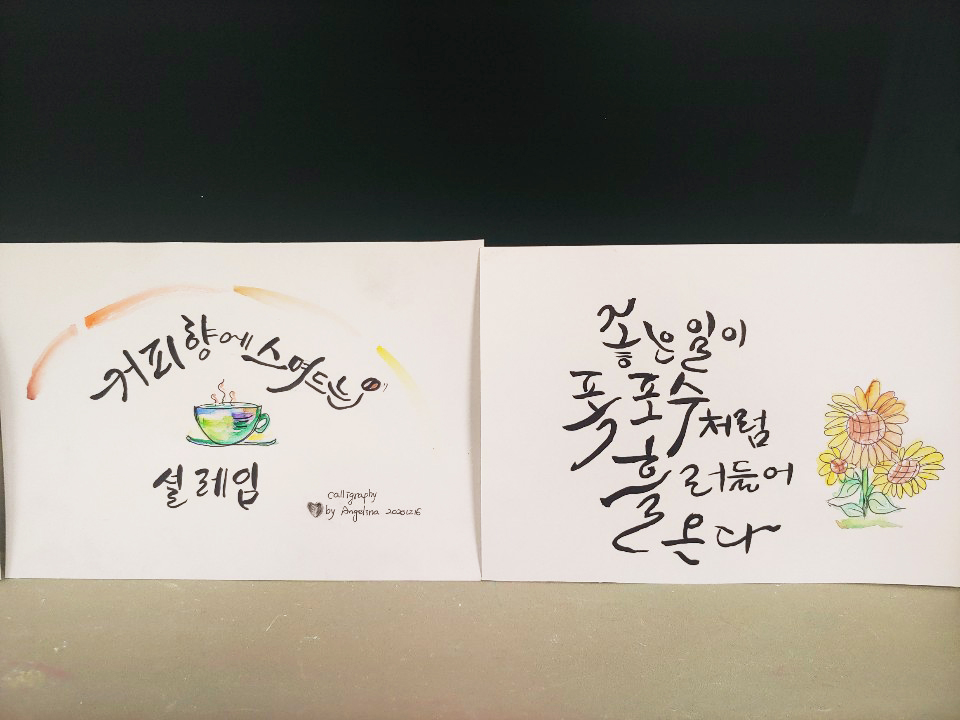 커피향에 스며드는
설레임
calligraphy
by Angelina 20201216
좋은일이
폭포수처럼
흘러들어
온다